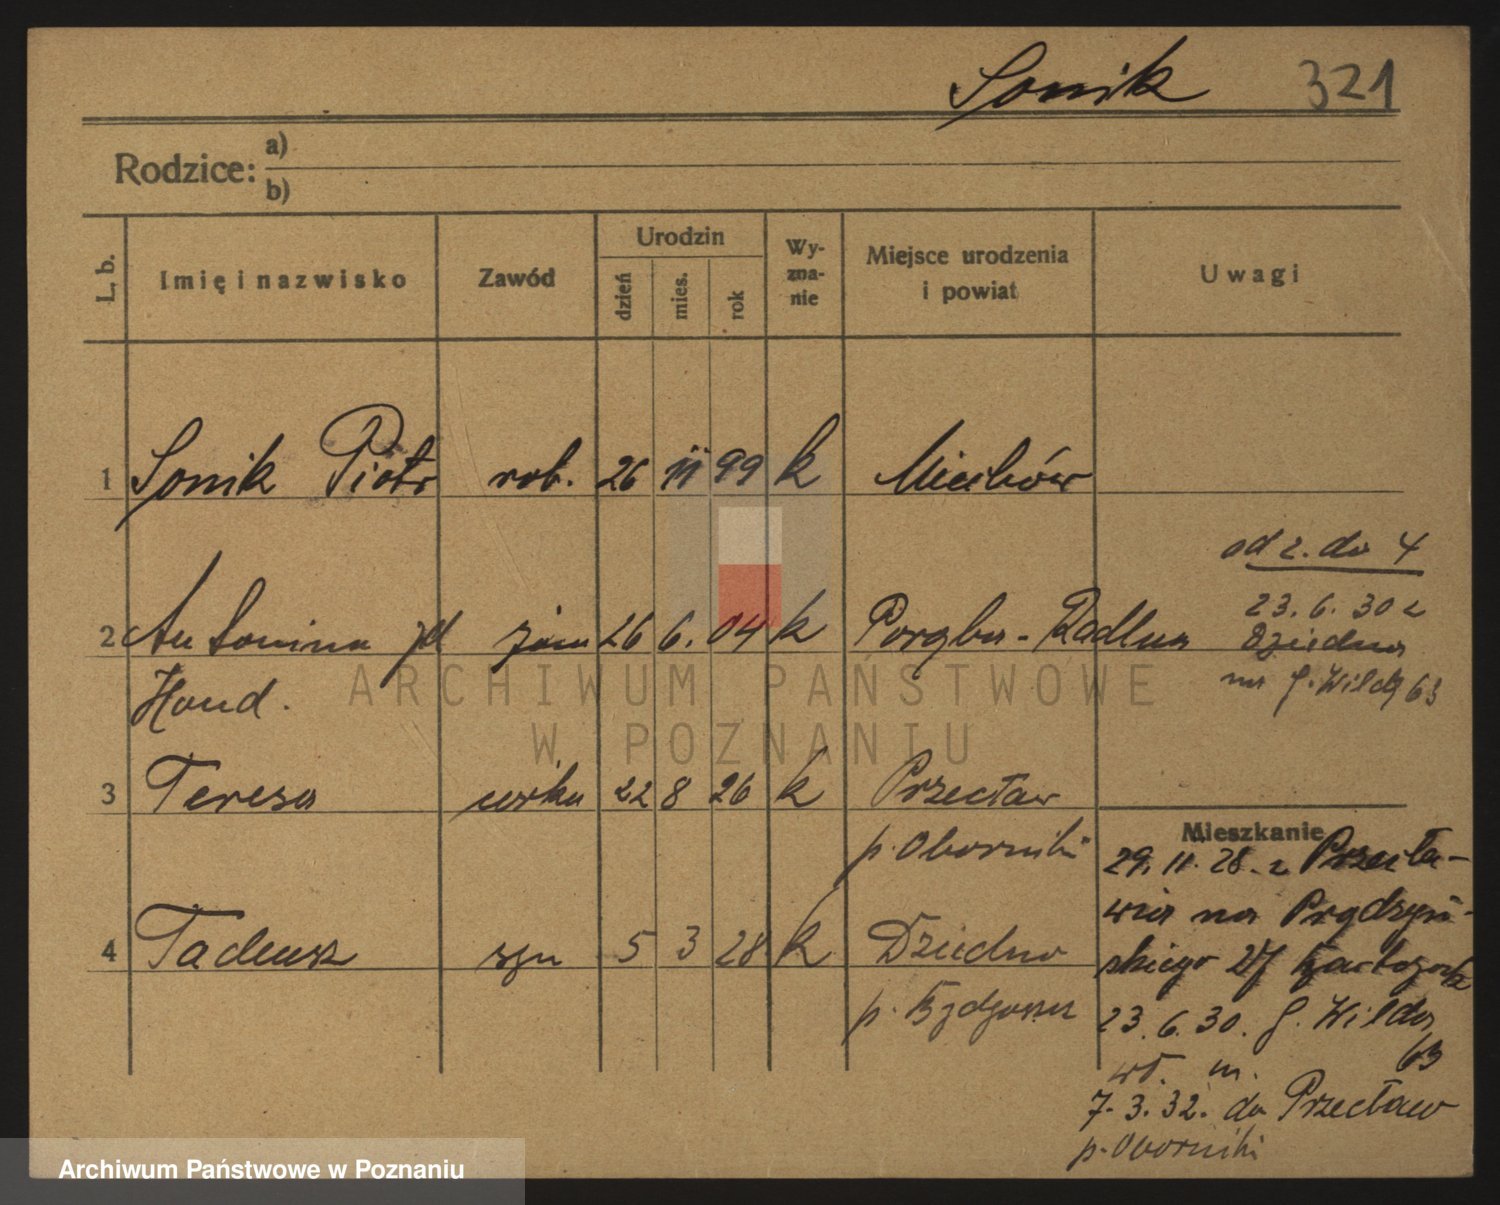 Sonik 321
Rodzice: a)
b)
L. b. Imię i nazwisko Zawód Urodzin dzień mies. rok Wy-zna-nie Miejsce urodzenia i powiat Uwagi
1 Sonik Piotr rob. 26 11 99 k Miechów
od 2. do 4
23. 6. 30 z
2 Antonina zd żona 26 6. 04 k Poręba-Radlna Dziedna
Hond.
na G. Wilda 63
ARCHIWUM PAŃSTWOWE
W POZNANIU
3 Teresa córka 22 8 26 k Przecław
p. Oborniki
4 Tadeusz syn 5 3 28 k Dziedno
p. Bydgoszcz
Mieszkanie
29. 11. 28. z Przecła-
wia na Prądzyń-
skiego
23. 6. 30. G. Wilda
63
wł. m.
7. 3. 32. do Przecław
p. Oborniki
Archiwum Państwowe w Poznaniu